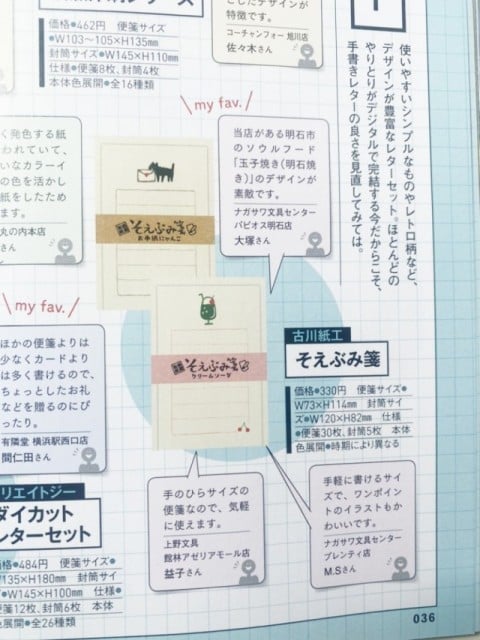 価格●462円　便箋サイズ
●W103〜105×H135mm
封筒サイズ●W145×H110mm
仕様●便箋8枚、封筒4枚
本体色展開●全16種類
デザインが
特徴です。
コーチャンフォー 旭川店
佐々木さん
使いやすいシンプルなものやレトロ柄など、
デザインが豊富なレターセット。ほとんどの
やりとりがデジタルで完結する今だからこそ、
手書きレターの良さを見直してみては。
my fav.
く発色する紙
われていて、
いなカラーイ
の色を活かし
紙をしたため
ます。
丸の内本店
さん
当店がある明石市
のソウルフード
「玉子焼き(明石焼
き)」のデザインが
素敵です。
ナガサワ文具センター
パピオス明石店
大塚さん
そえぶみ箋
お手紙にゃんこ
my fav.
ほかの便箋よりは
少なくカードより
は多く書けるので、
ちょっとしたお礼
などを贈るのにぴ
ったり。
有隣堂 横浜駅西口店
間仁田さん
そえぶみ箋
クリームソーダ
古川紙工
そえぶみ箋
価格●330円　便箋サイズ●
W73×H114mm　封筒サイ
ズ●W120×H82mm　仕様
●便箋30枚、封筒5枚　本体
色展開●時期により異なる
手のひらサイズ
の便箋なので、気軽
に使えます。
上野文具
館林アゼリアモール店
益子さん
手軽に書けるサイ
ズで、ワンポイン
トのイラストもか
わいいです。
ナガサワ文具センター
プレンティ店
M.Sさん
リエイトジー
ダイカット
レターセット
価格●484円　便箋サイズ●
W135×H180mm　封筒サイ
W145×H100mm　仕様●
便箋12枚、封筒6枚　本体
色展開●全26種類
036